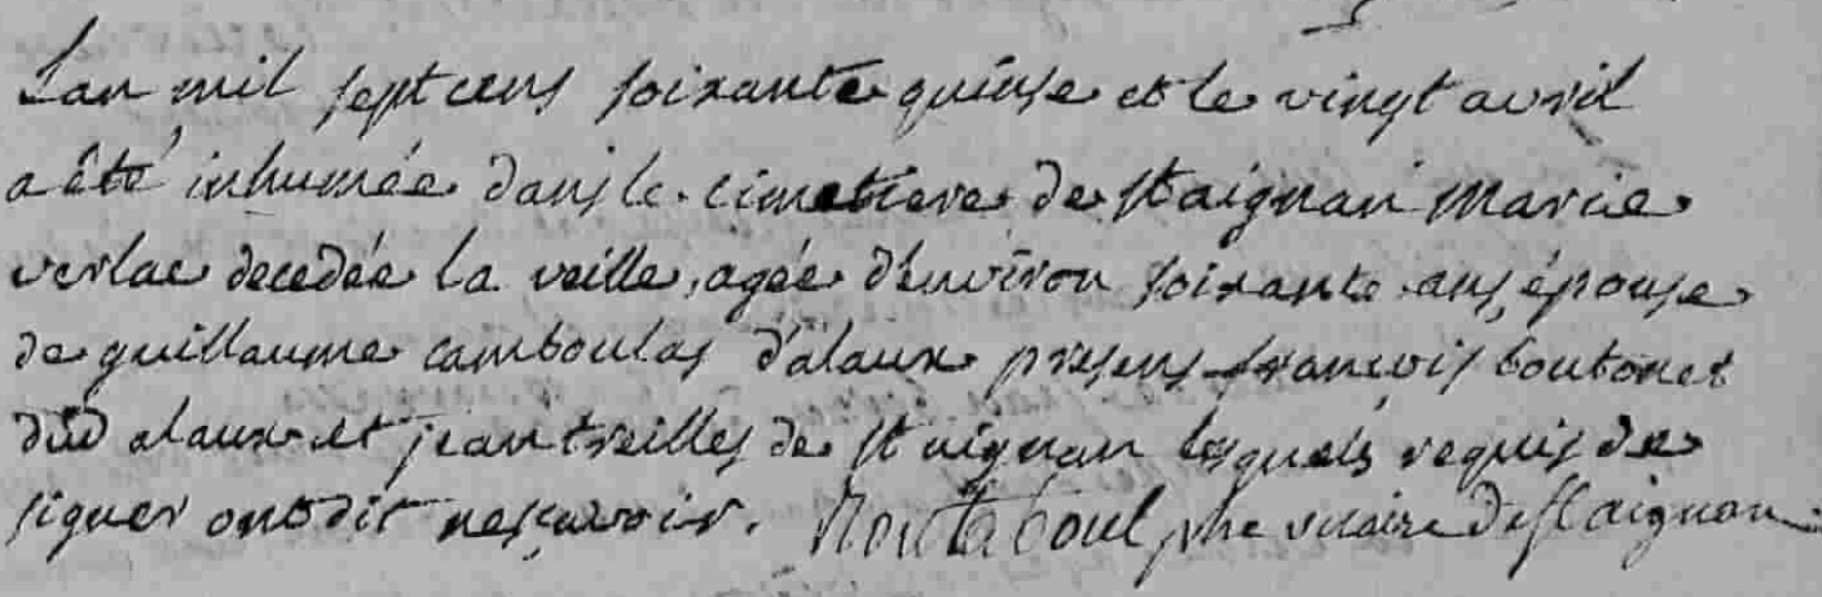 Lan mil sept cens soixante quinse et le vingt avril
a été inhumée dans le cimetiere de st aignan marie
verlac decedée la veille, agée d'environ soixante ans, épouse
de guillaume camboulas d'alaux presens françois boutonet
dud alaux et jean treilles de st aignan lesquels requis de
signer ont dit ne sçavoir. Montaboul ptre vicaire de st aignan